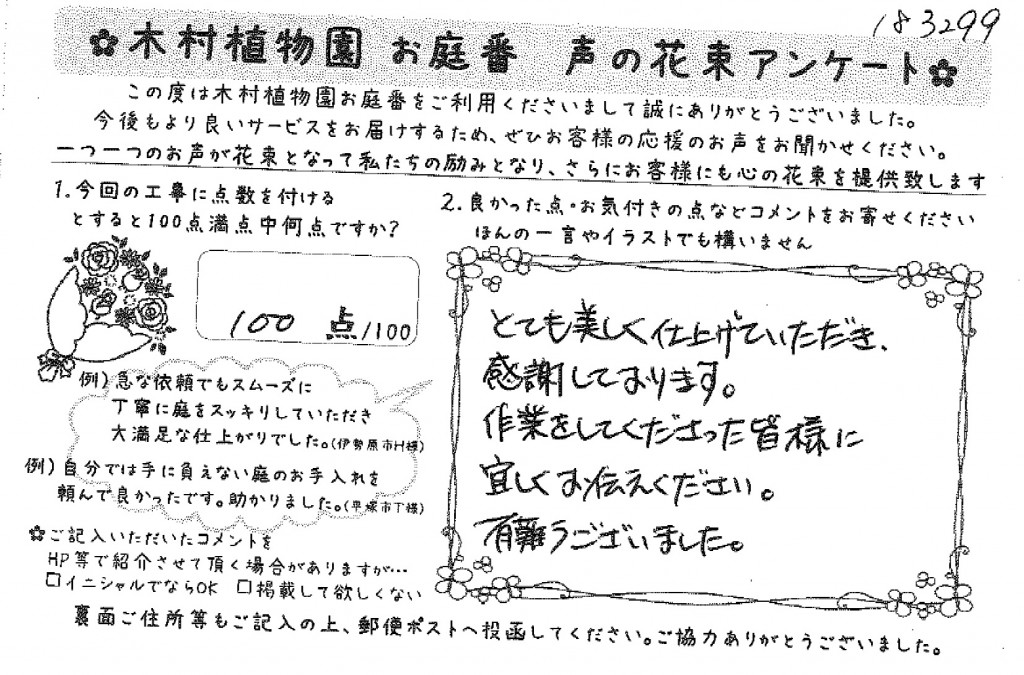 183299
✿木村植物園 お庭番 声の花束アンケート✿
この度は木村植物園お庭番をご利用くださいまして誠にありがとうございました。
今後もより良いサービスをお届けするため、ぜひお客様の応援のお声をお聞かせください。
一つ一つのお声が花束となって私たちの励みとなり、さらにお客様にも心の花束を提供致します
1.今回の工事に点数を付ける
とすると100点満点中何点ですか?
100 点/100
例)急な依頼でもスムーズに
丁寧に庭をスッキリしていただき
大満足な仕上がりでした。(伊勢原市H様)
例)自分では手に負えない庭のお手入れを
頼んで良かったです。助かりました。(平塚市T様)
✿ご記入いただいたコメントを
HP等で紹介させて頂く場合がありますが…
□イニシャルでならOK □掲載して欲しくない
2.良かった点・お気付きの点などコメントをお寄せください
ほんの一言やイラストでも構いません
とても美しく仕上げていただき、
感謝しております。
作業をしてくださった皆様に
宜しくお伝えください。
有難うございました。
裏面ご住所等もご記入の上、郵便ポストへ投函してください。ご協力ありがとうございました。